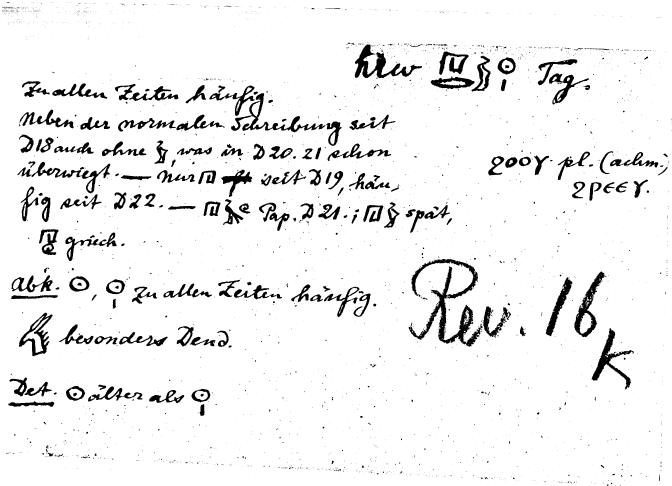 hrw 𓉔𓂋𓏲𓇳𓏤 Tag.
Zu allen Zeiten häufig.
Neben der normalen Schreibung seit
D18 auch ohne 𓏲, was in D20.21 schon
überwiegt. — Nur 𓉔 seit D19, häu-
fig seit D22. — 𓉔 Pap. D21.; 𓉔𓏲 spät,
griech.
ϩⲟⲟⲩ pl. (achm.)
ϩⲣⲉⲉⲩ.
Abk. 𓇳, 𓇳𓏤 zu allen Zeiten häufig.
besonders Dend.
Det. 𓇳 älter als 𓇳𓏤
Rev. 16
K